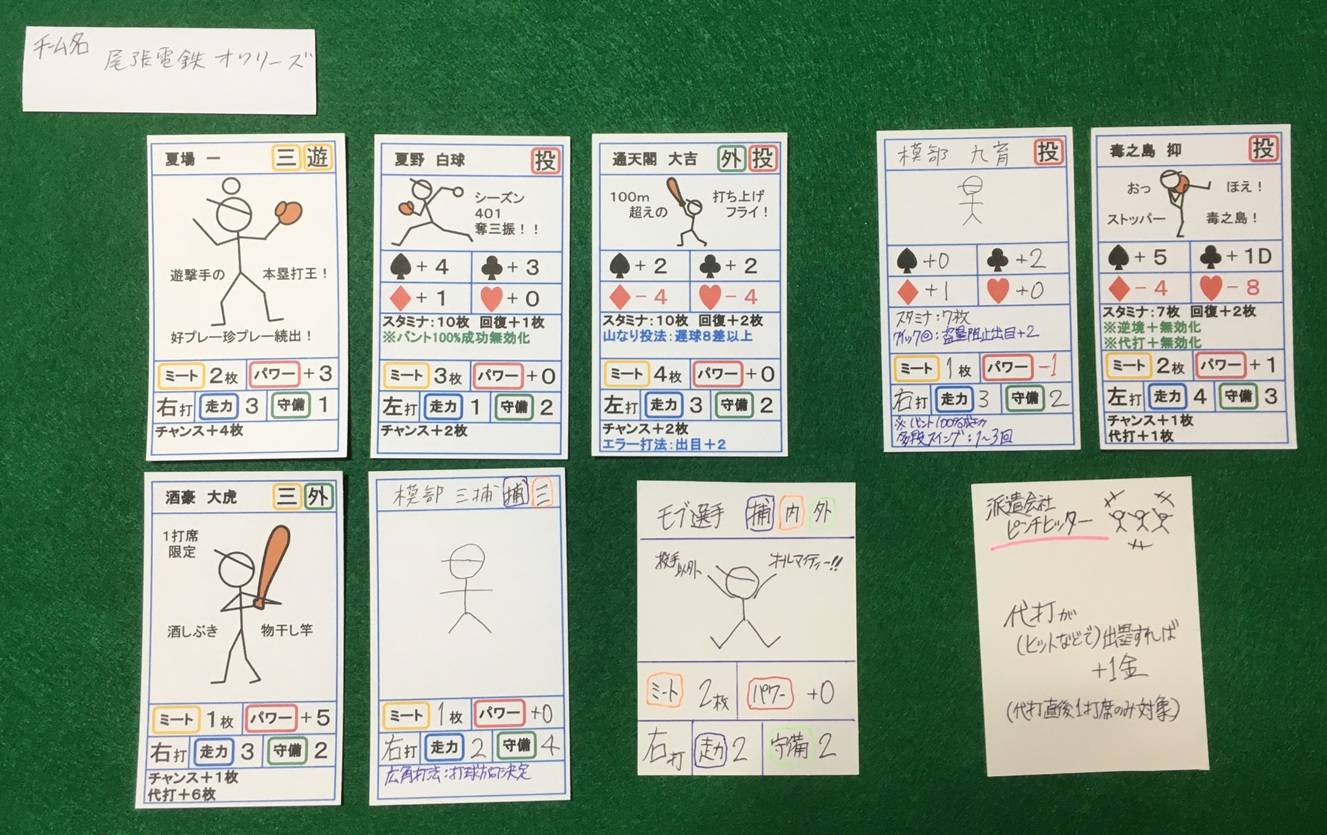 チーム名
尾張電鉄オワリーズ
夏場 一 三 遊
遊撃手の 本塁打王!
好プレー珍プレー続出!
ミート 2枚 パワー +3
右打 走力 3 守備 1
チャンス+4枚
夏野 白球 投
シーズン
401
奪三振!!
♠+4 ♣+3
♦+1 ♥+0
スタミナ:10枚 回復+1枚
※バント100%成功無効化
ミート 3枚 パワー +0
左打 走力 1 守備 2
チャンス+2枚
通天閣 大吉 外 投
100m 打ち上げ
超えの フライ!
♠+2 ♣+2
♦-4 ♥-4
スタミナ:10枚 回復+2枚
山なり投法:遅球8差以上
ミート 4枚 パワー +0
左打 走力 3 守備 2
チャンス+2枚
エラー打法:出目+2
模部 九育 投
♠+0 ♣+2
♦+1 ♥+0
スタミナ:7枚
クイック◎:盗塁阻止出目+2
ミート 1枚 パワー -1
右打 走力 3 守備 2
※バント100%成功
多段スイング:1~3回
毒之島 抑 投
おっ ほえ!
ストッパー 毒之島!
♠+5 ♣+1D
♦-4 ♥-8
スタミナ:7枚 回復+2枚
※逆境+無効化
※代打+無効化
ミート 2枚 パワー +1
左打 走力 4 守備 3
チャンス+1枚
代打+1枚
酒豪 大虎 三 外
1打席
限定
酒しぶき 物干し竿
ミート 1枚 パワー +5
右打 走力 3 守備 2
チャンス+1枚
代打+6枚
模部 三捕 捕 三
ミート 1枚 パワー +0
右打 走力 2 守備 4
広角打法:打球方向決定
モブ選手 捕 内 外
投手以外 オールマイティー!!
ミート 2枚 パワー +0
右打 走力 2 守備 2
派遣会社
ピンチヒッター
代打が
(ヒットなどで)出塁すれば
+1金
(代打直後1打席のみ対象)